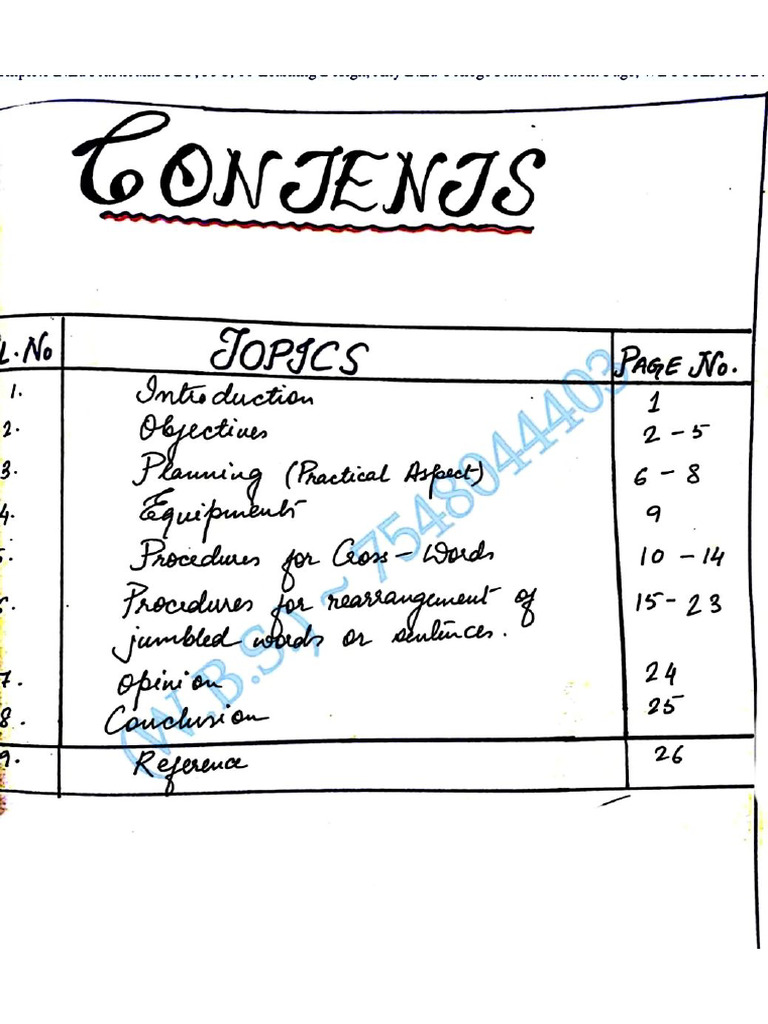 CONTENTS
L. No TOPICS PAGE No.
1. Introduction 1
2. Objectives 2-5
3. Planning (Practical Aspect) 6-8
4. Equipments 9
5. Procedures for Cross-Words 10-14
6. Procedures for rearrangement of 15-23
jumbled words or sentences.
7. Opinion 24
8. Conclusion 25
9. Reference 26
(W.B.S.) ~ 7548044403